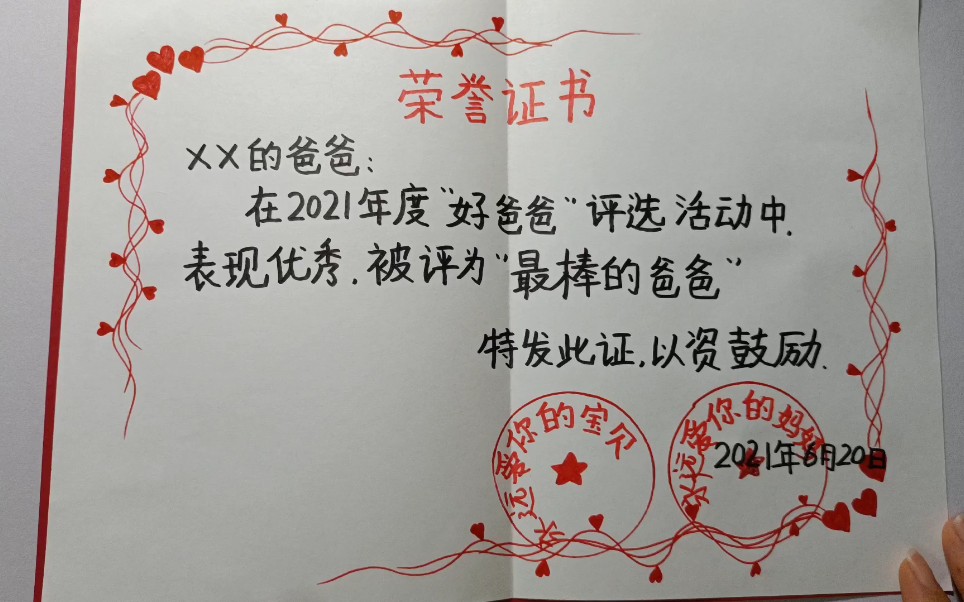 荣誉证书
XX的爸爸:
在2021年度"好爸爸"评选活动中.
表现优秀.被评为"最棒的爸爸"
特发此证.以资鼓励.
永远爱你的宝贝
永远爱你的妈妈
2021年6月20日